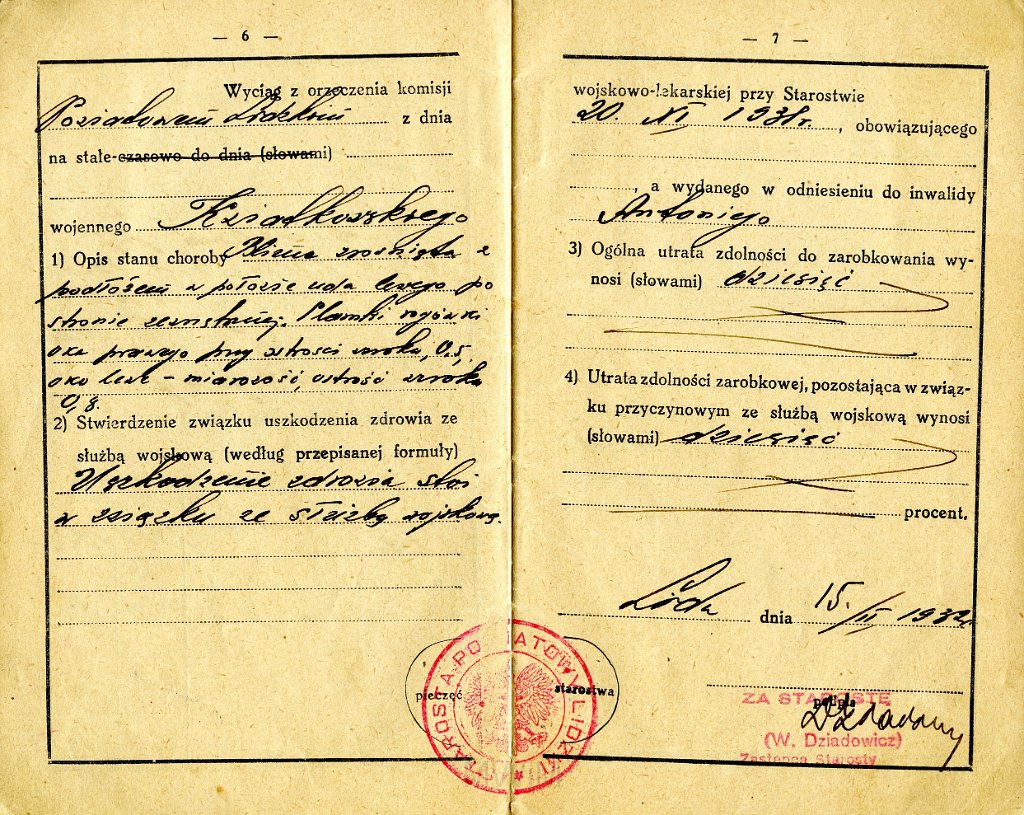 — 6 —
Wyciąg z orzeczenia komisji
Powiatowem Lidzkim z dnia
na stałe-czasowo do dnia (słowami)
wojennego Kziałkowskiego
1) Opis stanu choroby Blizna zrośnięta z
podłożem w połowie uda lewego po
stronie zewnętrznej. Plamki rogówki
oka prawego przy ostrości wzroku, 0,5,
oko lewe – miarowość, ostrość wzroku
0,8.
2) Stwierdzenie związku uszkodzenia zdrowia ze
służbą wojskową (według przepisanej formuły)
Uszkodzenie zdrowia stoi
w związku ze służbą wojskową.
pieczęć
— 7 —
wojskowo-lekarskiej przy Starostwie
20. XI 1931r., obowiązującego
, a wydanego w odniesieniu do inwalidy
Antoniego
3) Ogólna utrata zdolności do zarobkowania wy-
nosi (słowami) dziesięć
4) Utrata zdolności zarobkowej, pozostająca w związ-
ku przyczynowym ze służbą wojskową wynosi
(słowami) dziesięć
procent.
Lida dnia 15./II 1932r.
starostwa
STAROSTA POWIATOWY LIDZKI
podpis
ZA STAROSTĘ
(W. Dziadowicz)
Zastępca Starosty